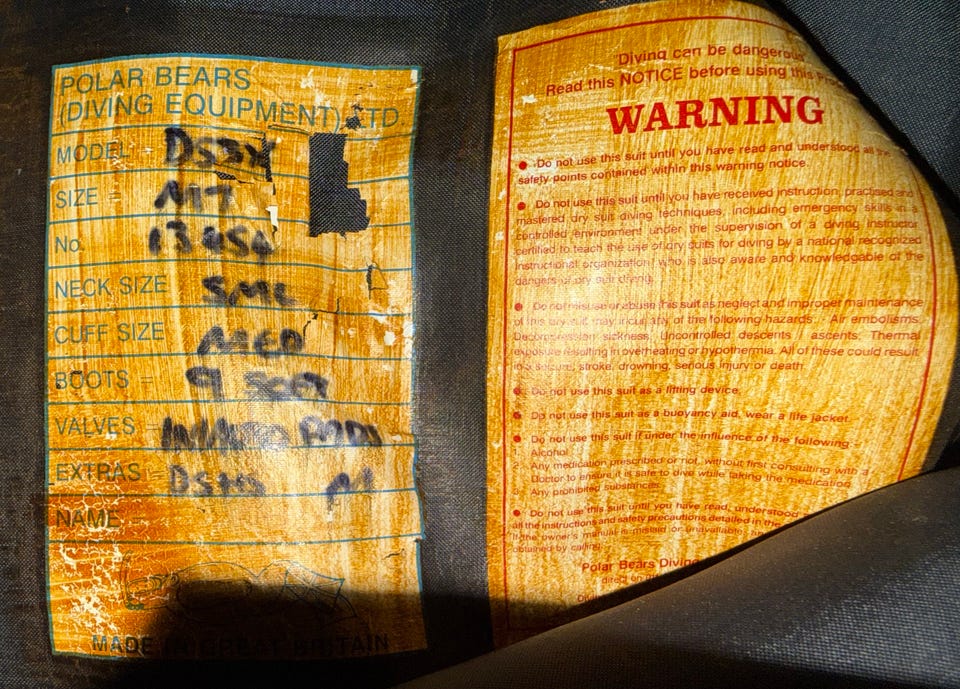 POLAR BEARS
(DIVING EQUIPMENT) LTD
MODEL
SIZE =
No.
NECK SIZE SML
CUFF SIZE MED
BOOTS = 9
VALVES =
EXTRAS =
NAME =
MADE IN GREAT BRITAIN
Diving can be dangerous
Read this NOTICE before using this
WARNING
● Do not use this suit until you have read and understood all the
safety points contained within this warning notice.
● Do not use this suit until you have received instruction, practised and
mastered dry suit diving techniques, including emergency skills in a
controlled environment under the supervision of a diving instructor
certified to teach the use of dry suits for diving by a national recognized
instructional organization who is also aware and knowledgable of the
dangers of dry suit diving.
● Do not misuse or abuse this suit as neglect and improper maintenance
of this dry suit may incur any of the following hazards:- Air embolisms,
Decompression sickness, Uncontrolled descents / ascents, Thermal
exposure resulting in overheating or hypothermia. All of these could result
in a seizure, stroke, drowning, serious injury or death.
● Do not use this suit as a lifting device.
● Do not use this suit as a buoyancy aid, wear a life jacket.
● Do not use this suit if under the influence of the following:-
1. Alcohol
2. Any medication prescribed or not, without first consulting with a
Doctor to ensure it is safe to dive while taking the medication
3. Any prohibited substances.
● Do not use this suit until you have read, understood
all the instructions and safety precautions detailed in the
If the owner's manual is mislaid or unavailable
obtained by calling
Polar Bears Diving
direct on